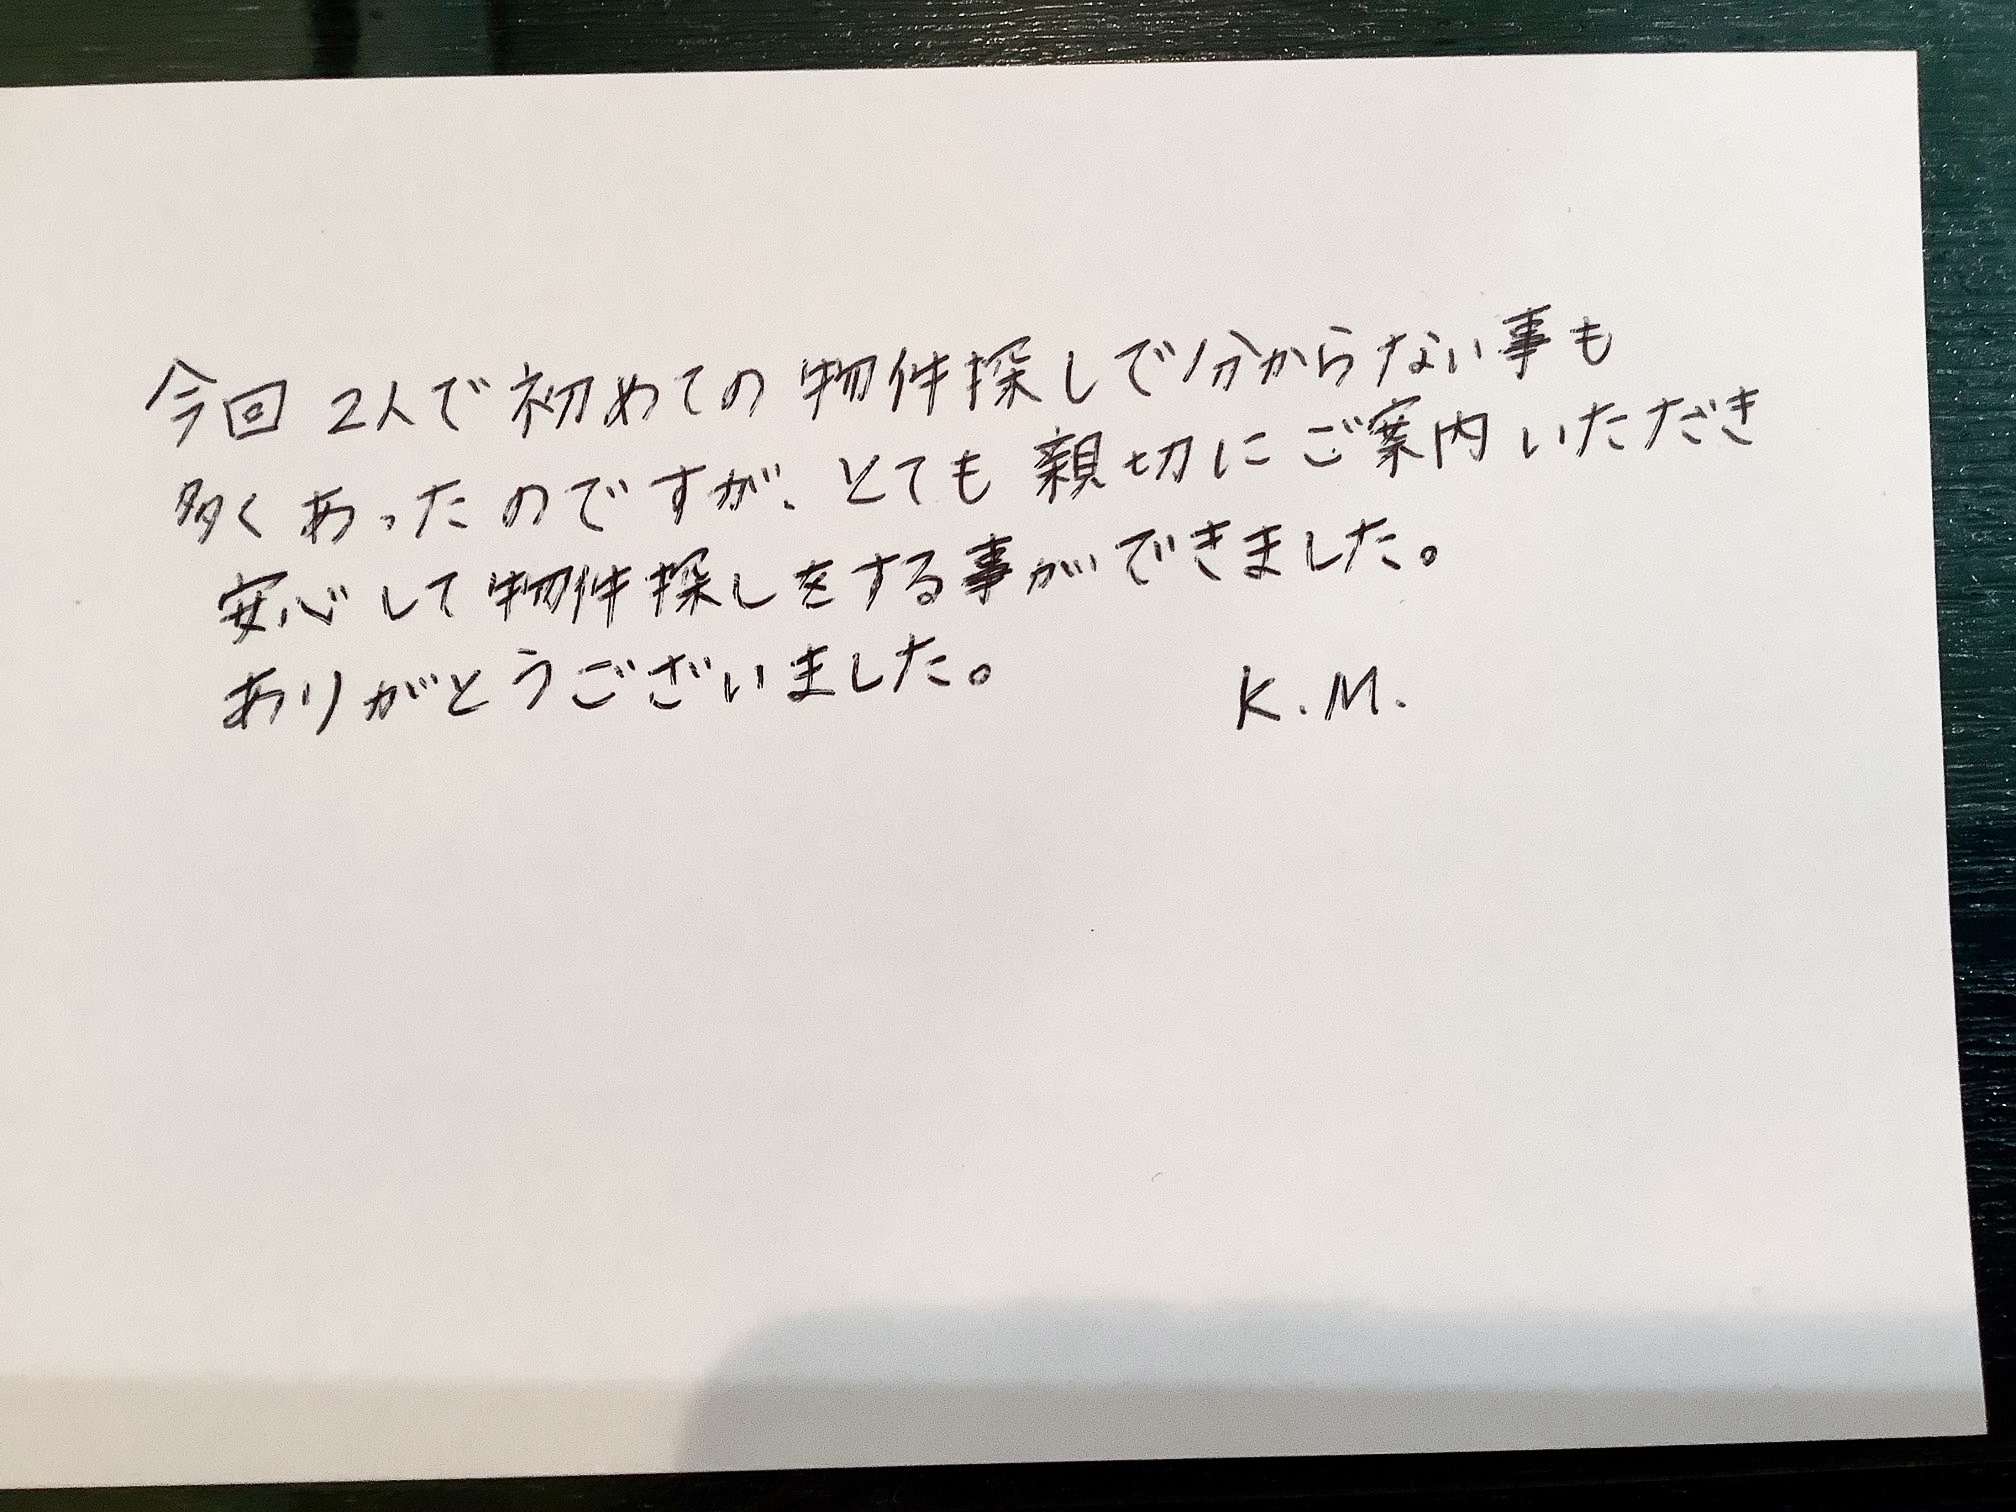 今回 2人で初めての物件探しで分からない事も
多くあったのですが、とても親切にご案内いただき
安心して物件探しをする事ができました。
ありがとうございました。 K.M.